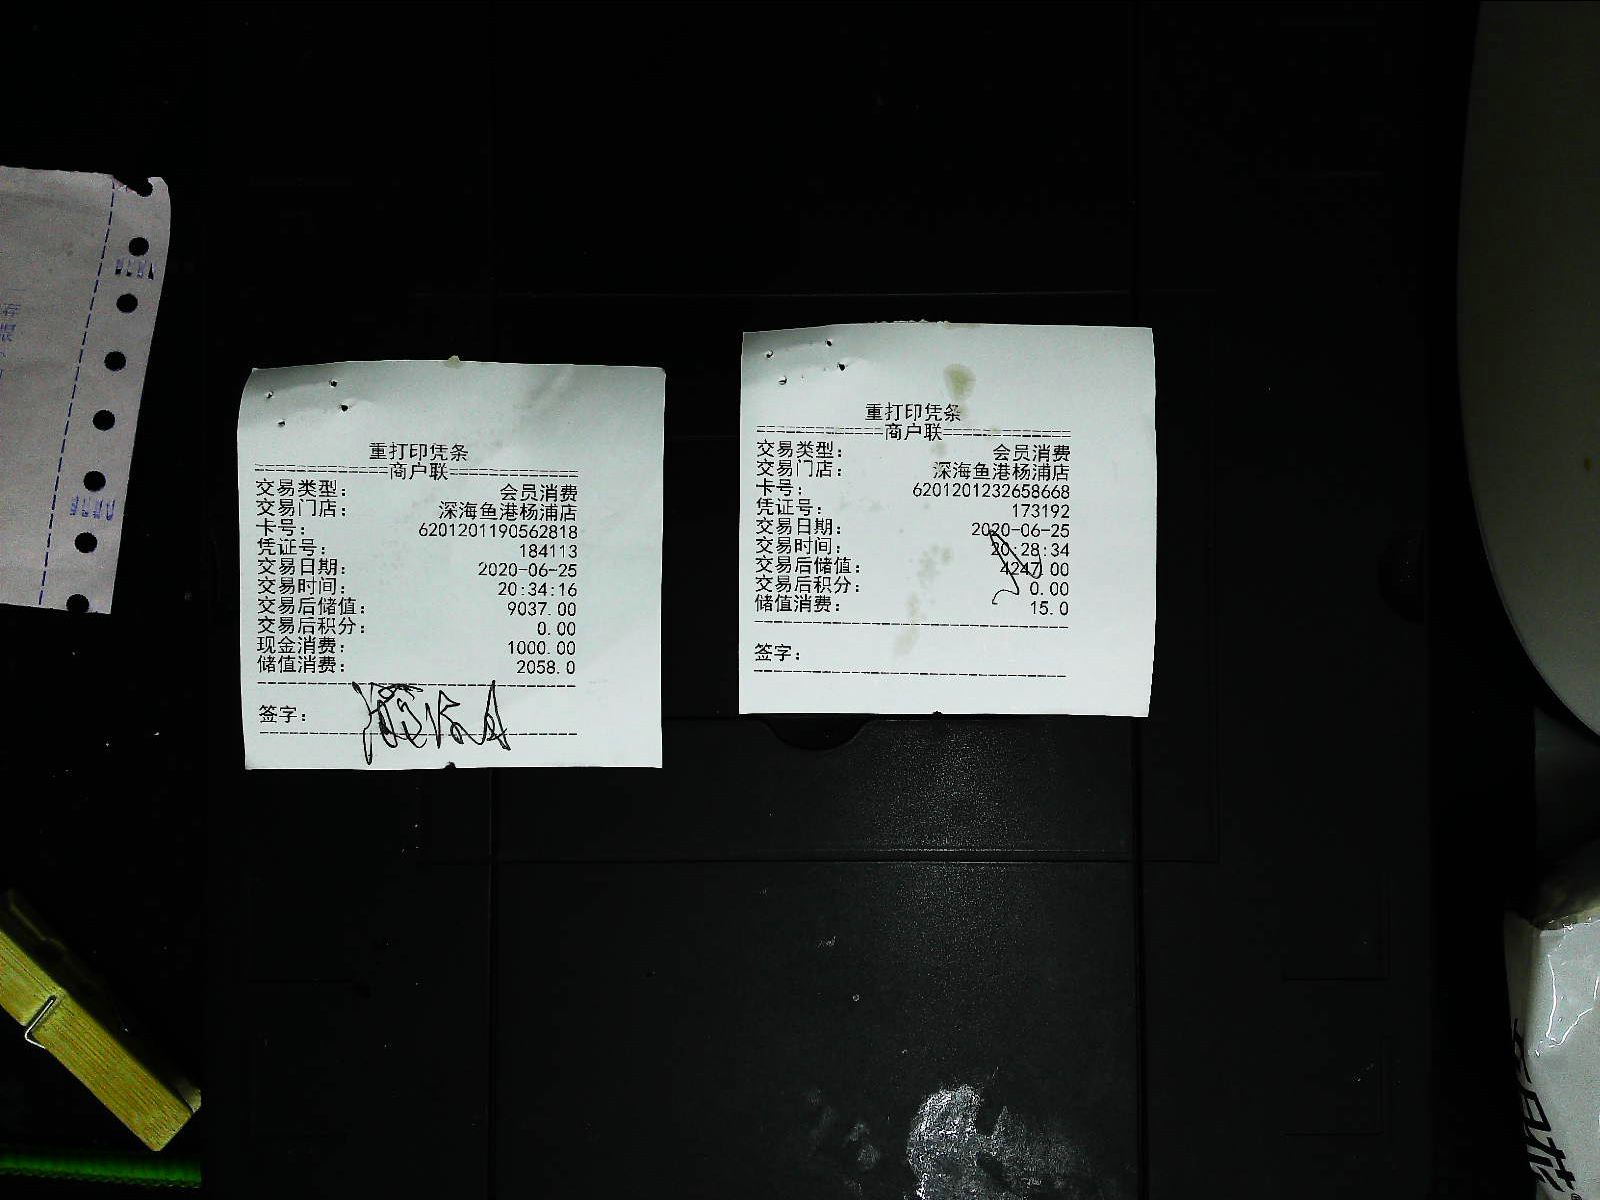 重打印凭条
=============商户联=============
交易类型： 会员消费
交易门店： 深海鱼港杨浦店
卡号： 6201201190562818
凭证号： 184113
交易日期： 2020-06-25
交易时间： 20:34:16
交易后储值： 9037.00
交易后积分： 0.00
现金消费： 1000.00
储值消费： 2058.0
签字：
重打印凭条
=============商户联=============
交易类型： 会员消费
交易门店： 深海鱼港杨浦店
卡号： 6201201232658668
凭证号： 173192
交易日期： 2020-06-25
交易时间： 20:28:34
交易后储值： 4247.00
交易后积分： 0.00
储值消费： 15.0
签字：